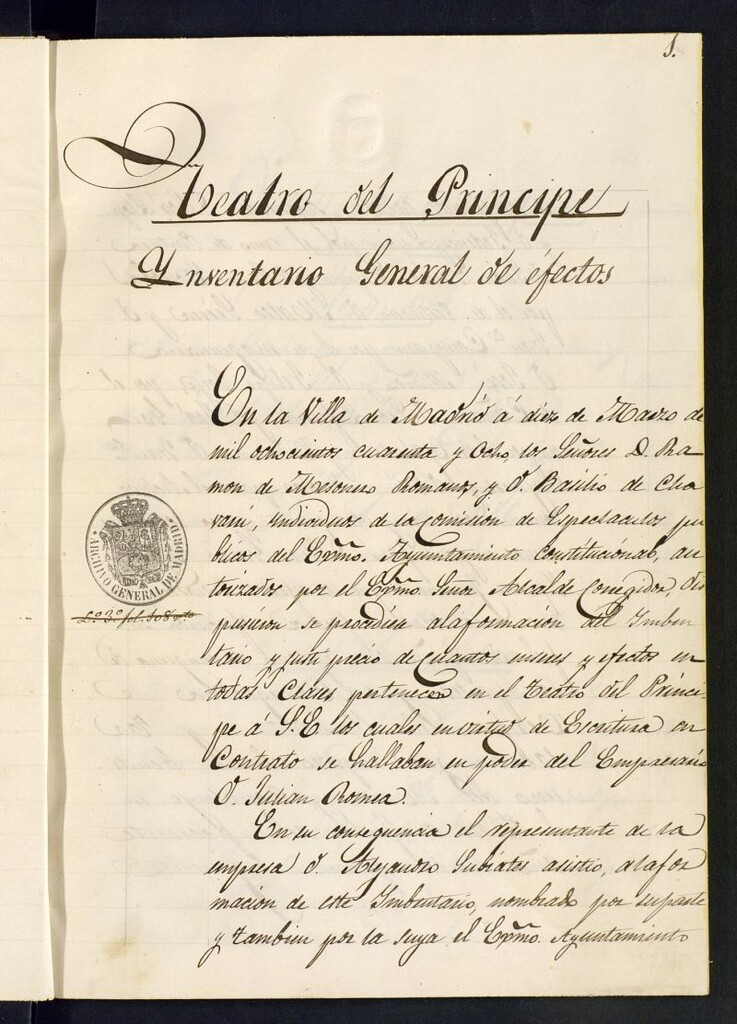 1.
Teatro del Principe
Ynventario General de éfectos
En la Villa de Madrid á diez de Marzo de
mil ochocientos cuarenta y Ocho, los Señores D. Ra
mon de Mesonero Romanos, y D. Basilio de Cha
varri, individuos de la comision de Espectaculos pu
blicos del Exmo. Ayuntamiento constitucional, au
torizados por el Exmo. Señor Alcalde Corregidor, dis
pusieron se procediese alaformacion del Imben
tario y justi precio de cuantos enseres y efectos en
todas Clases pertenecen en el Teatro del Princi-
pe á S.E los cuales envirtud de Escritura en
Contrato se hallaban en poder del Empresario
D. Julian Romea.
En su consequencia el representante de la
empresa D. Alejandro asistio, alafor
macion de este Imbentario, nombrado por suparte
y tambien por la suya el Exmo. Ayuntamiento
ARCHIVO GENERAL DE MADRID